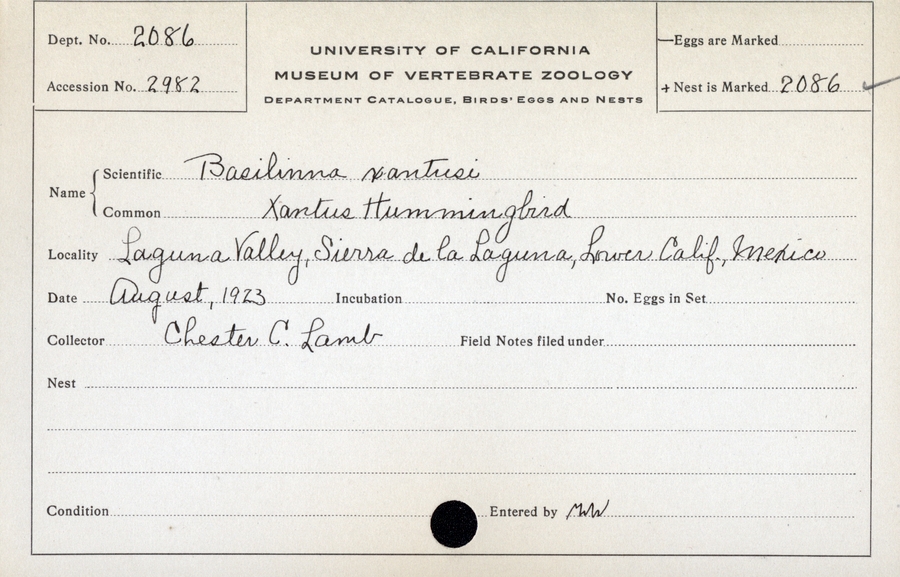 Dept. No. 2086
Accession No. 2982
UNIVERSITY OF CALIFORNIA
MUSEUM OF VERTEBRATE ZOOLOGY
DEPARTMENT CATALOGUE, BIRDS' EGGS AND NESTS
—Eggs are Marked
+ Nest is Marked 2086
Name
Scientific Basilinna xantusi
Common Xantus Hummingbird
Locality Laguna Valley, Sierra de la Laguna, Lower Calif., Mexico
Date August, 1923 Incubation No. Eggs in Set
Collector Chester C. Lamb Field Notes filed under
Nest
Condition Entered by